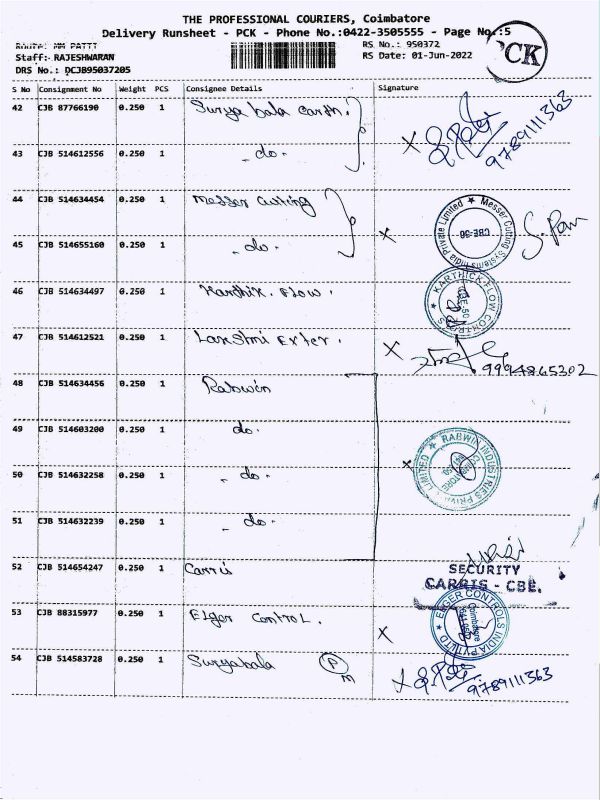 THE PROFESSIONAL COURIERS, Coimbatore
Delivery Runsheet - PCK - Phone No.:0422-3505555 - Page No.:5
PCK
Route: MM PATTI
RS No.: 950372
Staff: RAJESHWARAN
RS Date: 01-Jun-2022
DRS No.: DCJB95037205
S No Consignment No Weight PCS Consignee Details Signature
42 CJB 87766190 0.250 1 Surya bala Earth. 9789111363
43 CJB 514612556 0.250 1 - do -
44 CJB 514634454 0.250 1 Messer Cutting
Messer Cutting Systems India Private Limited ★ CBE-50
45 CJB 514655160 0.250 1 - do -
46 CJB 514634497 0.250 1 Karthik. Flow.
★ KARTHICK FLOW CONTROLS
47 CJB 514612521 0.250 1 Laxshmi Exter. 9994865302
48 CJB 514634456 0.250 1 Rabwin
49 CJB 514603200 0.250 1 do -
RABWIN INDUSTRIES PRIVATE LIMITED ★
50 CJB 514632258 0.250 1 - do -
51 CJB 514632239 0.250 1 - do -
52 CJB 514654247 0.250 1 Carris
SECURITY
CARRIS - CBE.
53 CJB 88315977 0.250 1 Elger Control.
ELGER CONTROLS INDIA PVT LTD ★ Coimbatore
54 CJB 514583728 0.250 1 Suryabala P M 9789111363